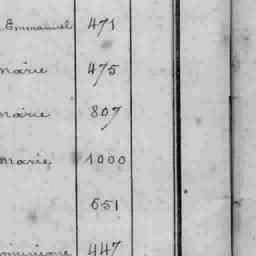 Emmanuel 471
Marie 475
Marie 807
Marie 1000
651
447